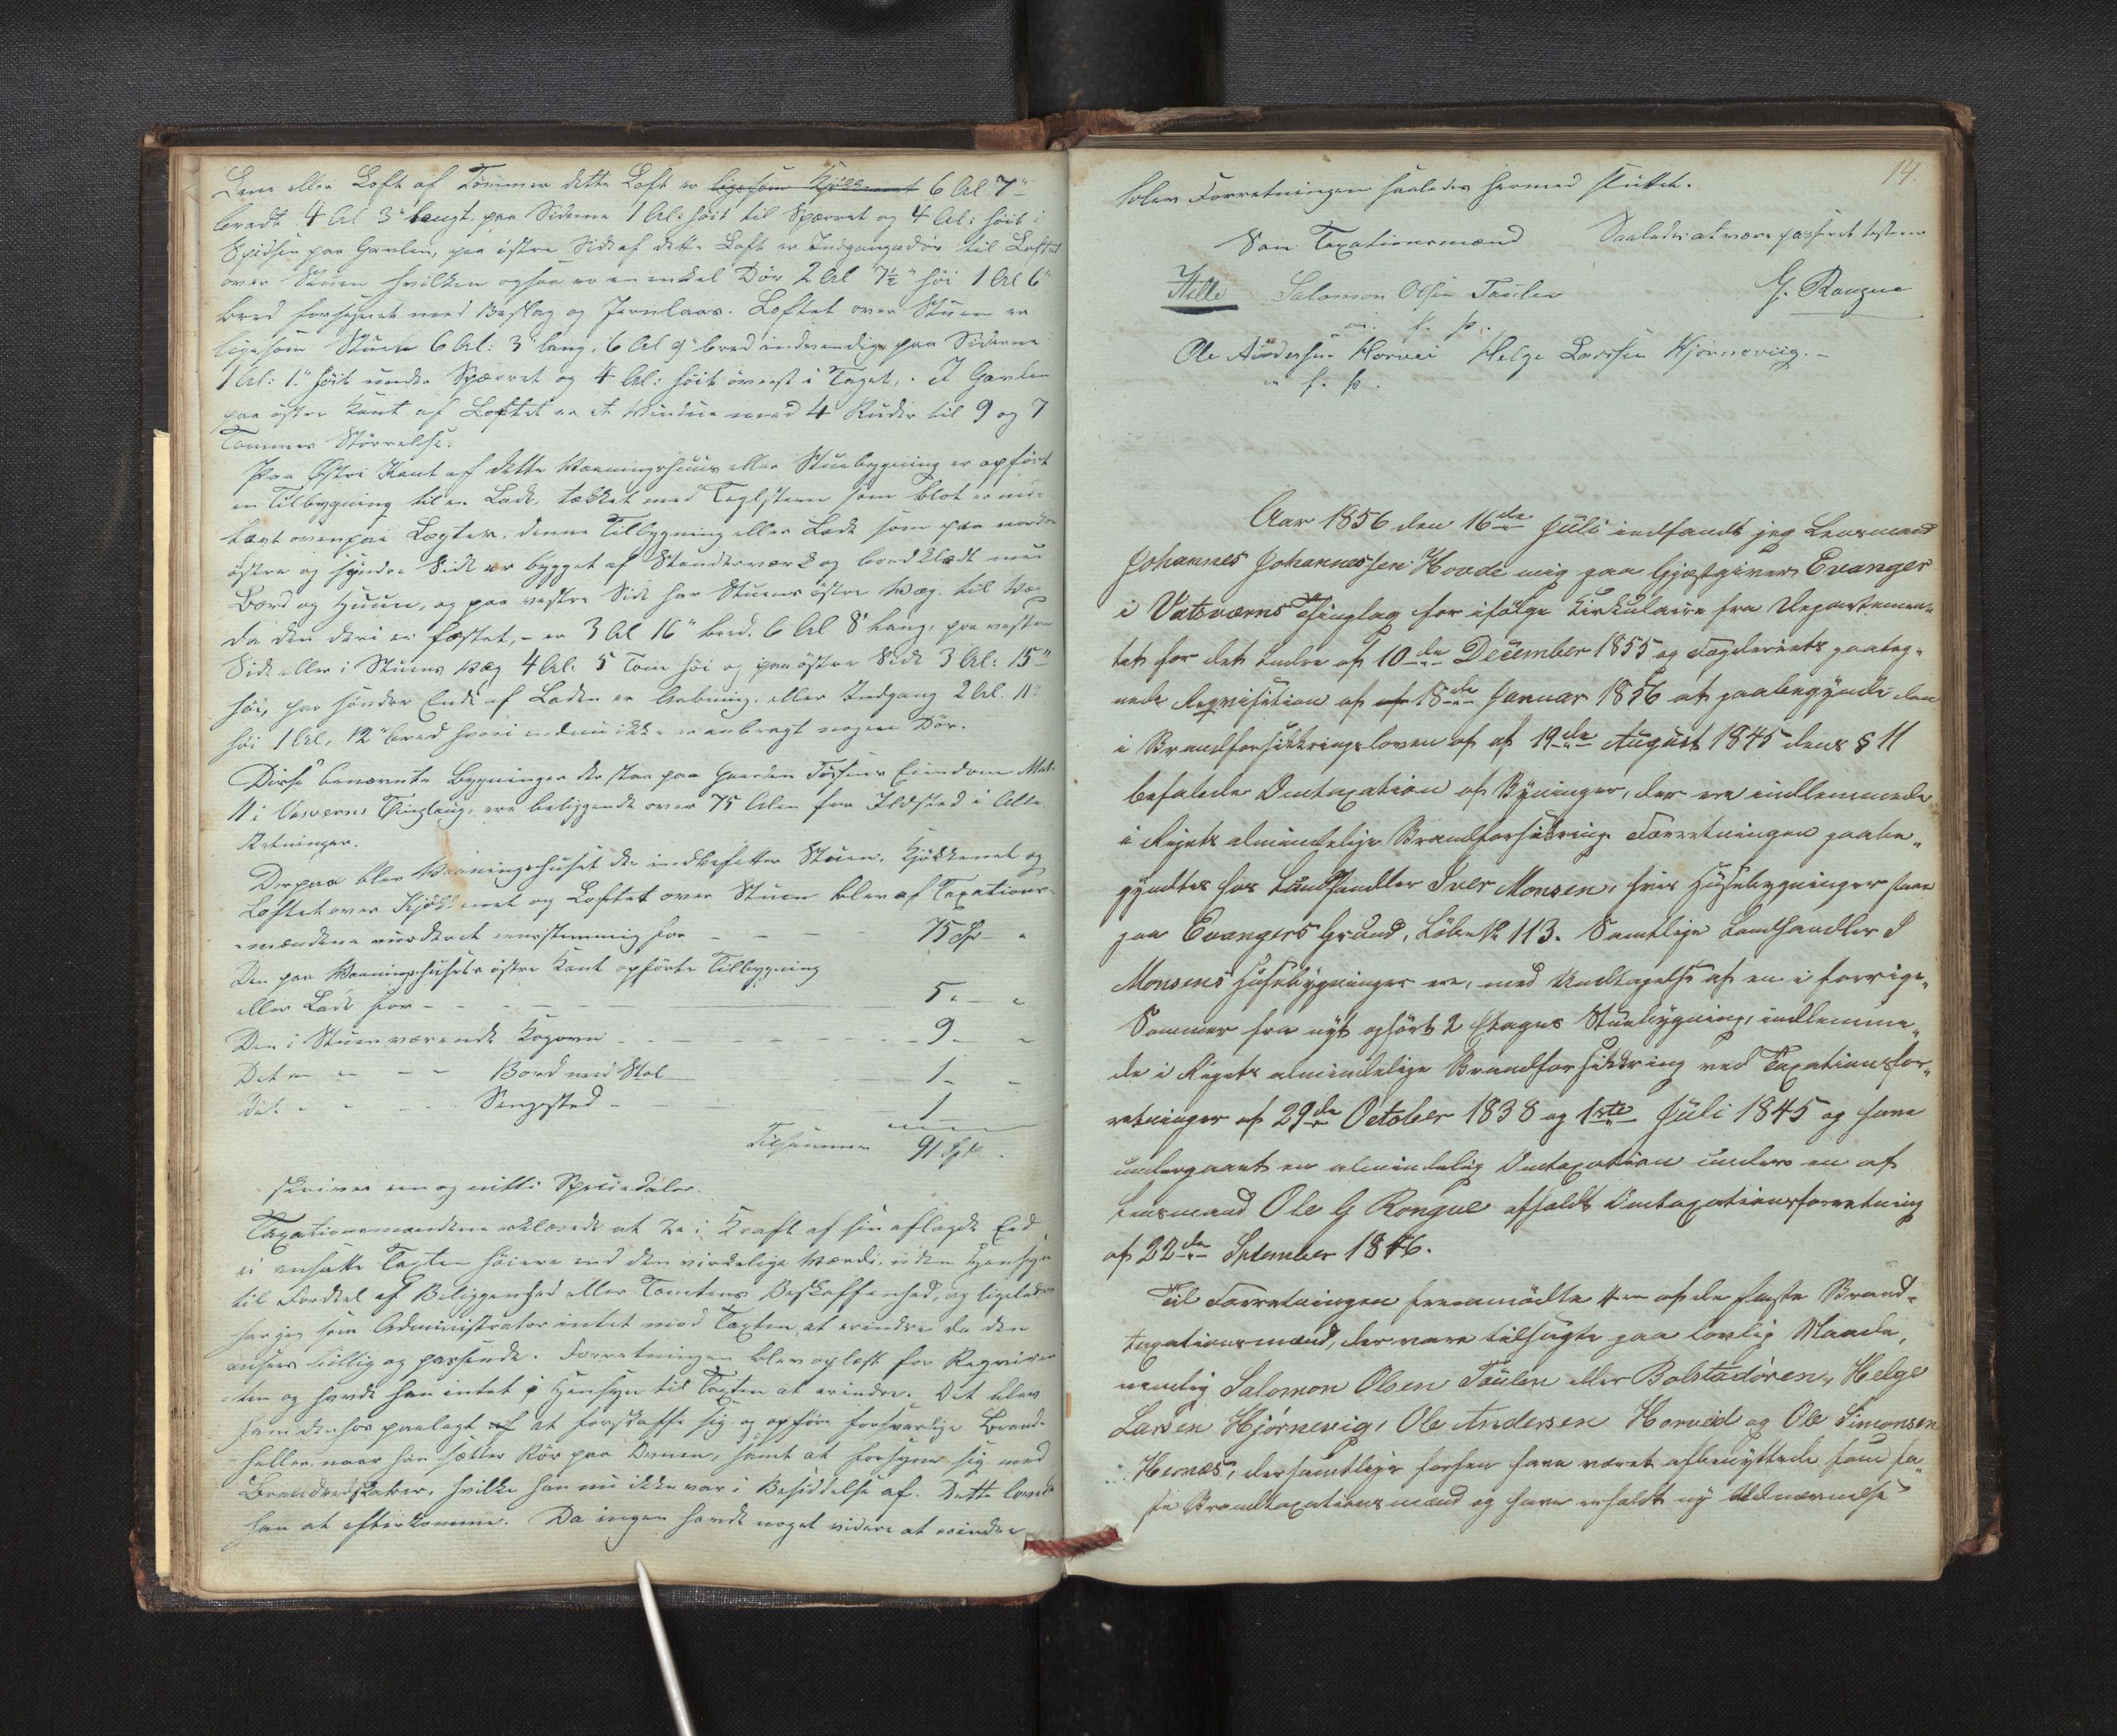 Lem eller Loft af Tømmer dette Loft er ligesom Kjøkkenet 6 Al 7"
bredt 4 Al 3" langt, paa Siderne 1 Al: høit til Sperret og 4 Al: høit i
Spidsen paa Gavlen, paa østre Side af dette Loft er Indgangsdør til Loftet
over Stuen hvilken ogsaa er en enkel Dør 2 Al 7½" høi 1 Al 6"
bred forsynet med Beslag og Jernlaas. Loftet over Stuen er
ligesom Stuen 6 Al: 3" lang, 6 Al 9" bred indvendig paa Siderne
1 Al: 1" høit under Sperret og 4 Al: høit øverst i Taget, I Gavlen
paa østre Kant af Loftet er et Vindue med 4 Ruder til 9 og 7
Tommers Størrelse.
Paa Østre Kant af dette Vaaningshuus eller Stuebygning er opført
en Tilbygning til en Lade, tækket med Taglsteen som blot er ned-
lagt ovenpaa Lægter, denne Tilbygning eller Lade som paa nordre
østre og søndre Side er bygget af Stenderværk og bordklædt med
Bord og Huun, og paa vestre Side har Stuens østre Væg til Væg
da den deri er fæstet, - er 3 Al 16" bred. 6 Al 8" lang, paa vestre
Side eller i Stuens Væg 4 Al: 5 Tom høi og paa østre Side 3 Al: 15"
høi, paa søndre Ende af Laden er Aabning eller Indgang 2 Al. 11"
høi 1 Al, 12" bred hvori endnu ikke er anbragt nogen Dør.
Disse benævnte Bygninger der staar paa Gaarden Eiendom Mat:
11 i Vasverns Thinglaug, ere beliggende over 75 Alen fra Ildsted i Alle
Retninger.
Derpaa blev Vaaningshuset der indbefatter Stuen, Kjøkkenet og
Loftet over Kjøkkenet og Loftet over Stuen blev af Taxations-
mændene vurderet eenstemmig for - - - 75 Spd "
Den paa Vaaningshusets østre Kant opførte Tilbygning
eller Lade for - - - 5 - "
Den i Stuen værende Kogovn - - - 9 - "
Det " " - - Bord med Stol - - 1 - "
Det " " - - Sengested - - 1
Tilsammen 91 Spd.
skriver een og nitti Speciedaler.
Taxationsmændene erklærede at de i Kraft af sin aflagde Eed
ei ansatte Taxten høiere end den virkelige Værdi, uden Hensyn
til Fordeel af Beliggenhed eller Tomtens Beskaffenhed, og ligeledes
har jeg som Administrator intet mod Taxten at erindre da den
ansees billig og passende. Forretningen blev oplæst for Requiren-
ten og havde han intet i Hensyn til Taxten at erindre. Det blev
ham derhos paalagt at forskaffe sig og opføre forsvarlige Brand-
heller, naar han sætter Rør paa Ovnen, samt at forsyne sig med
Brandredskaber, hvilke han nu ikke var i Besiddelse af. Dette lovede
han at efterkomme. Da ingen havde noget videre at erindre
14.
blev Forretningen saaledes hermed sluttet.
Som Taxationsmænd Saaledes at være passeret testerer
Hille Salomon Olsen Taulen G. Rongve
m. f. p.
Ole Andersen Horvei Helge Larssen Hjørnevig. -
m f. p.
Aar 1856 den 16de Juli indfandt jeg Lensmand
Johannes Johannessen Hovde mig paa Gjæstgiveri Evanger
i Vatsværns Thinglag for ifølge Cirkulaire fra Departemen-
tet for det Indre af 10de December 1855 og Fogderiets paateg-
nede Requisition af af 18de Januar 1856 at paabegynde den
i Brandforsikkringsloven af af 19de August 1845 dens § 11
befalede Omtaxation af Byninger, der ere indlemmede
i Rigets almindelige Brandforsikring. Forretningen paabe-
gyndtes hos Landhandler Iver Monsen, hvis Husebygninger staar
paa Evangers Grund, Løbe No 113. Samtlige Landhandler I
Monsens Husebygninger ere, med Undtagelse af en i forrige
Sommer fra nyt opført 2 Etages Stuebygning, indlemme-
de i Rigets almindelige Brandforsikkring ved Taxationsfor-
retninger af 29de October 1838 og 1ste Juli 1845 og have
undergaaet en almindelig Omtaxation under en af
Lensmand Ole G Rongve afholdt Omtaxationsforretning
af 22de September 1846.
Til Forretningen fremmødte 4re af de faste Brand-
taxationsmænd, der vare tilsagte paa lovlig Maade,
nemlig Salomon Olsen Taulen eller Bolstadøren, Helge
Larsen Hjørnevig, Ole Andersen Horveid og Ole Simonsen
Hernæs, der samtlige forhen have været afbenyttede som fa-
ste Brandtaxationsmænd og have erholdt ny Udnævnelse